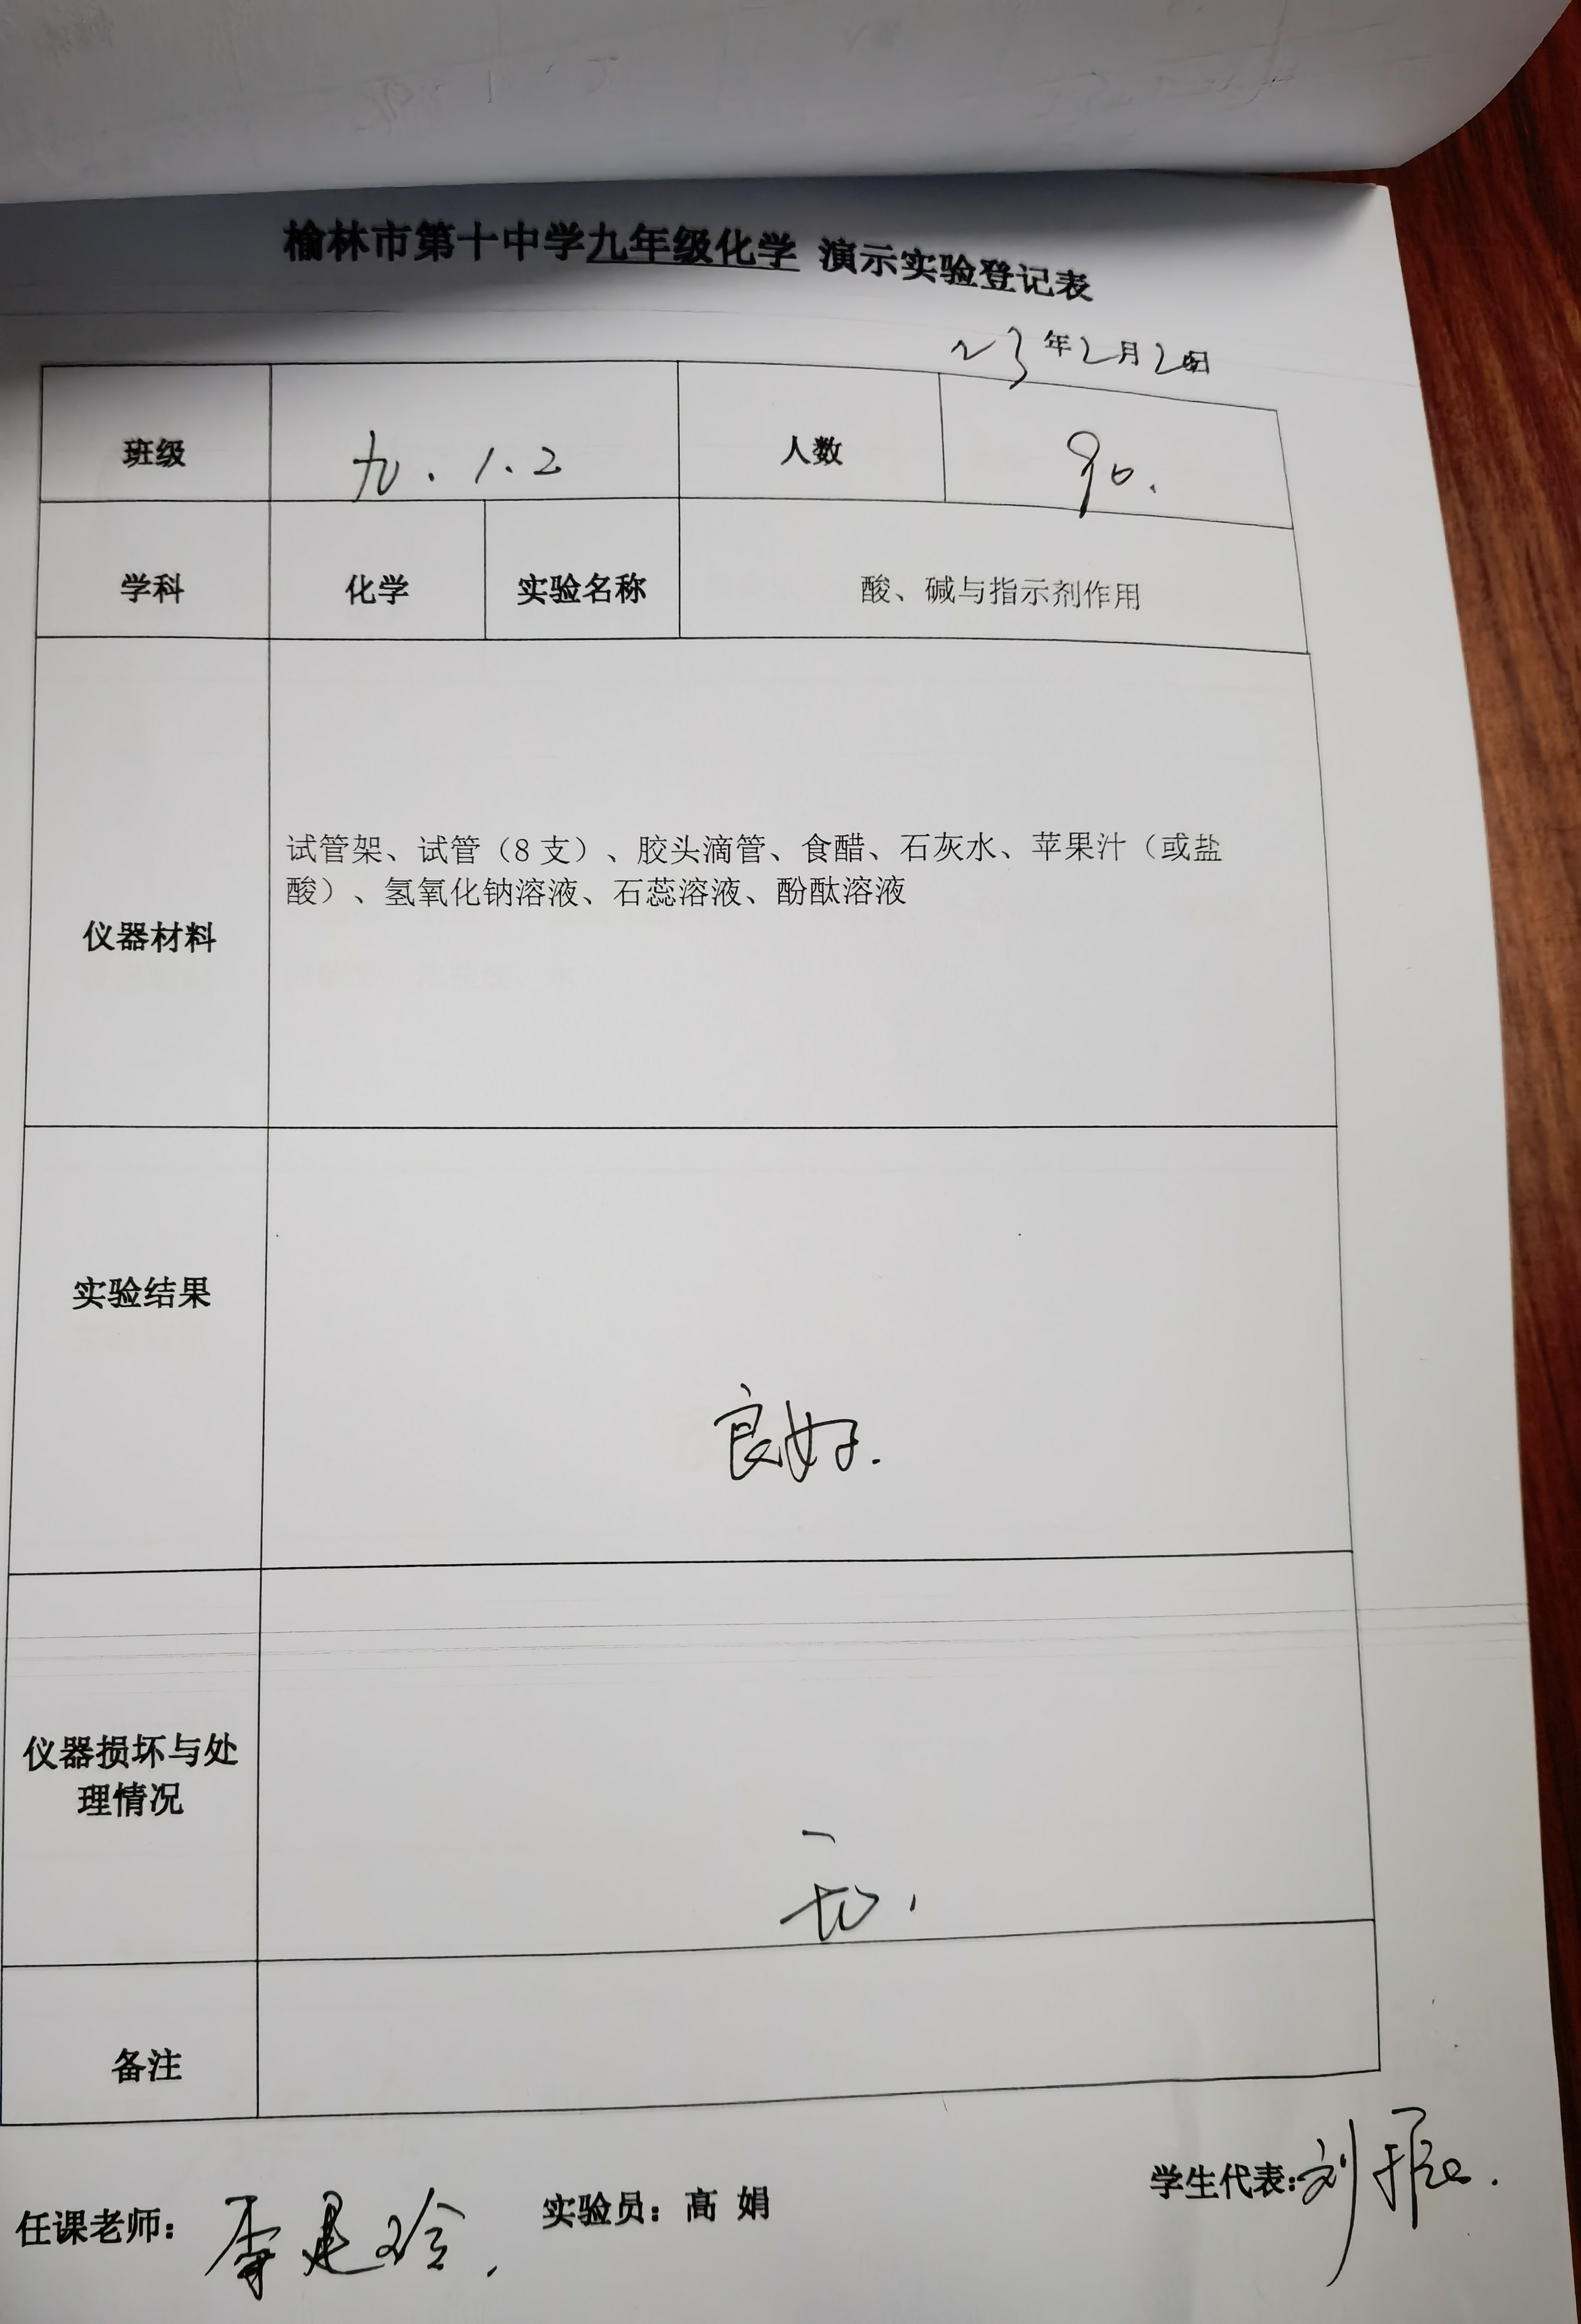 榆林市第十中学九年级化学 演示实验登记表
23年2月20日
班级 九.1.2 人数 90.
学科 化学 实验名称 酸、碱与指示剂作用
试管架、试管（8支）、胶头滴管、食醋、石灰水、苹果汁（或盐
酸）、氢氧化钠溶液、石蕊溶液、酚酞溶液
仪器材料
实验结果
良好.
仪器损坏与处
理情况
无.
备注
任课老师： 实验员：高 娟 学生代表:刘